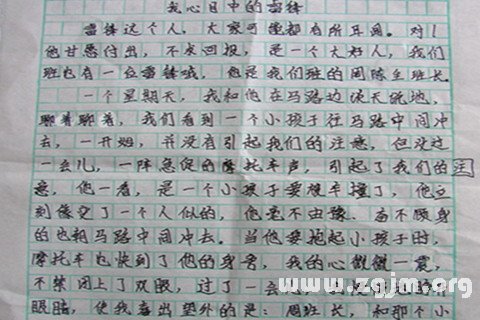 我心目中的雷锋
雷锋这个人，大家可能都有所耳闻。对！
他甘愿付出，不求回报，是一个大好人，我们
班也有一位雷锋哦，他是我们班的周陈立班长。
一个星期天，我和他在马路边谈天说地，
聊着聊着，我们看到一个小孩子往马路中间冲
去，一开始，并没有引起我们的注意，但没过
一会儿，一阵急促的摩托车声，引起了我们的注
意，他一看，是一个小孩子要被车撞了，他立
刻像变了一个人似的，他毫不由豫、奋不顾身
的也朝马路中间冲去。当他要抱起小孩子时，
摩托车也快到了他的身旁，我的心微微一震，
不禁闭上了双眼，过了一会
眼睛，使我喜出望外的是：周班长，和那个小
www.zgjm.org